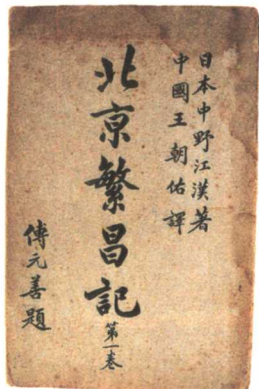 日本中野江漢著
中國王朝佑譯
北京繁昌記
第一卷
傅元善題